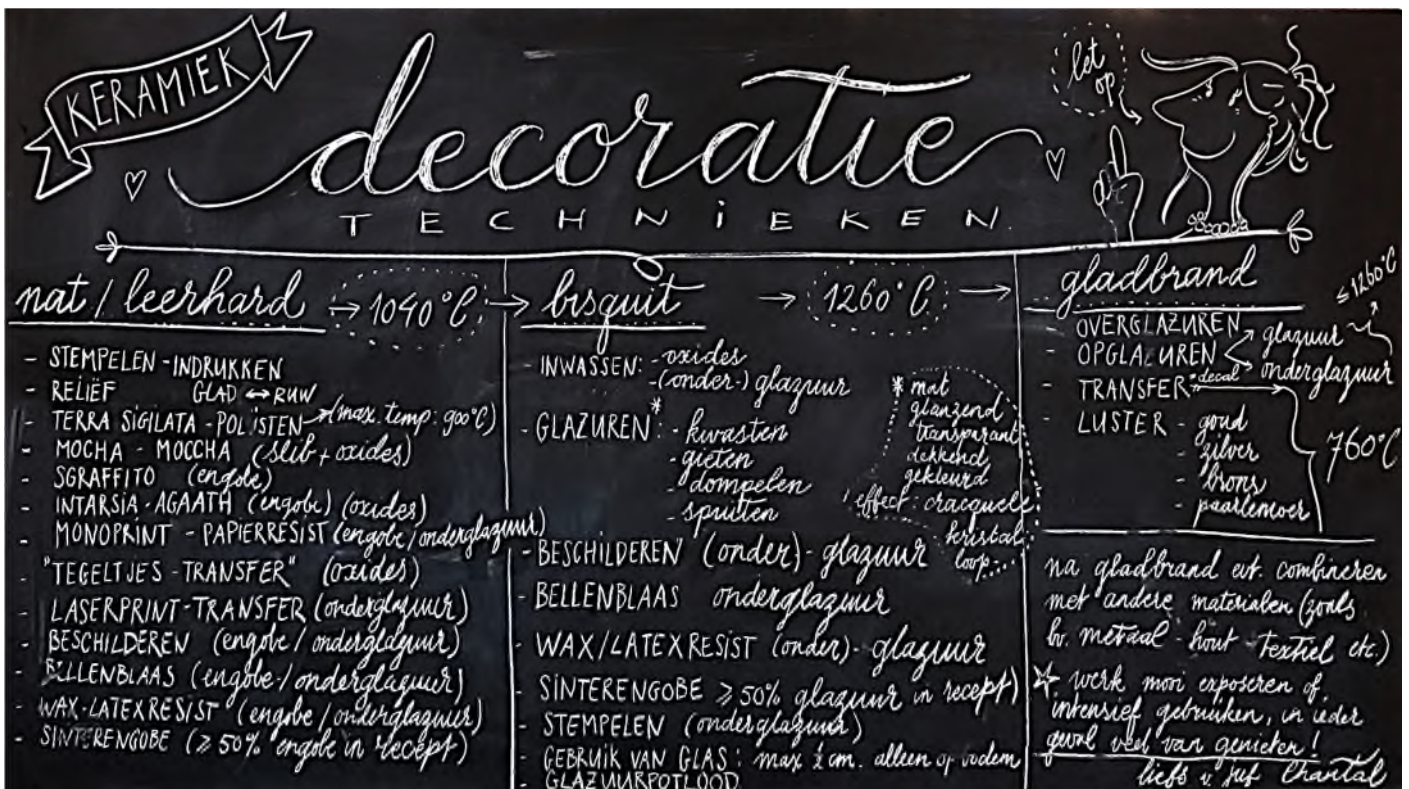 KERAMIEK
decoratie
TECHNIEKEN
let
op
nat / leerhard → 1040°C →
- STEMPELEN - INDRUKKEN
- RELIËF GLAD ↔ RUW
- TERRA SIGILATA - POLISTEN → (max. temp: 900°C)
- MOCHA - MOCCHA (slib + oxides)
- SGRAFFITO (engobe)
- INTARSIA - AGAATH (engobe) (oxides)
- MONOPRINT - PAPIERRESIST (engobe / onderglazuur)
- "TEGELTJES - TRANSFER" (oxides)
- LASERPRINT - TRANSFER (onderglazuur)
- BESCHILDEREN (engobe / onderglazuur)
- BELLENBLAAS (engobe - / onderglazuur)
- WAX - LATEXRESIST (engobe / onderglazuur)
- SINTERENGOBE (≥ 50% engobe in recept)
bisquit → 1260°C →
- INWASSEN: - oxides
- (onder-) glazuur
- GLAZUREN*: - kwasten
- gieten
- dompelen
- spuiten
* mat
glanzend
transparant
dekkend
gekleurd
effect: cracquelé
kristal
loop
- BESCHILDEREN (onder) - glazuur
- BELLENBLAAS onderglazuur
- WAX/LATEXRESIST (onder) - glazuur
- SINTERENGOBE ≥ 50% glazuur in recept)
- STEMPELEN (onderglazuur)
- GEBRUIK VAN GLAS: max ½ cm. alleen op bodem
- GLAZUURPOTLOOD
gladbrand
≤ 1260°C
- OVERGLAZUREN glazuur
- OPGLAZUREN onderglazuur
- TRANSFER: decal
- LUSTER - goud
- zilver
- brons
- paarlemoer
760°C
na gladbrand evt. combineren
met andere materialen (zoals
bv. metaal - hout - textiel etc.)
☆ werk mooi exposeren of
intensief gebruiken, in ieder
geval veel van genieten!
liefs v. juf Chantal